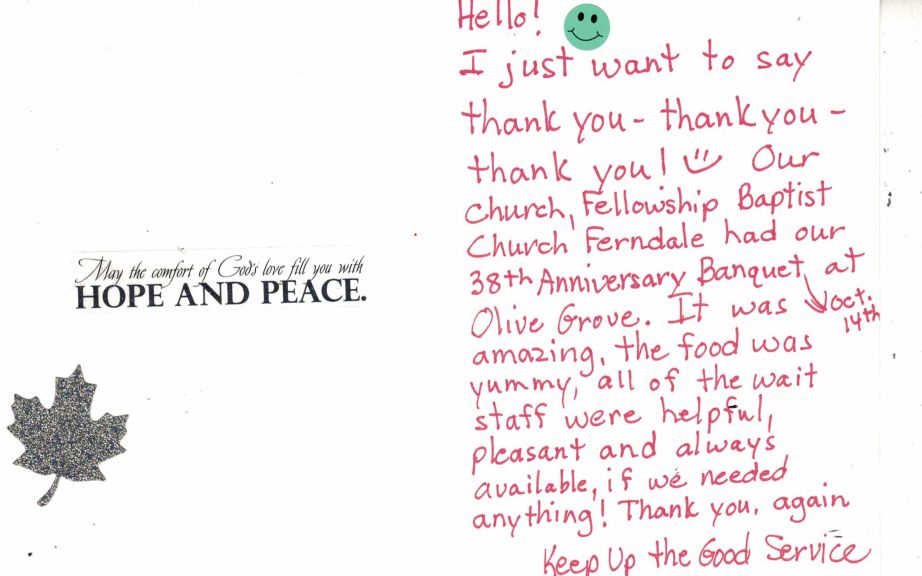 May the comfort of God's love fill you with
HOPE AND PEACE.
Hello!
I just want to say
thank you - thank you -
thank you! Our
Church, Fellowship Baptist
Church Ferndale had our
38th Anniversary Banquet, at
Olive Grove. It was oct.
14th
amazing, the food was
yummy, all of the wait
staff were helpful,
pleasant and always
available, if we needed
anything! Thank you, again
Keep Up the Good Service